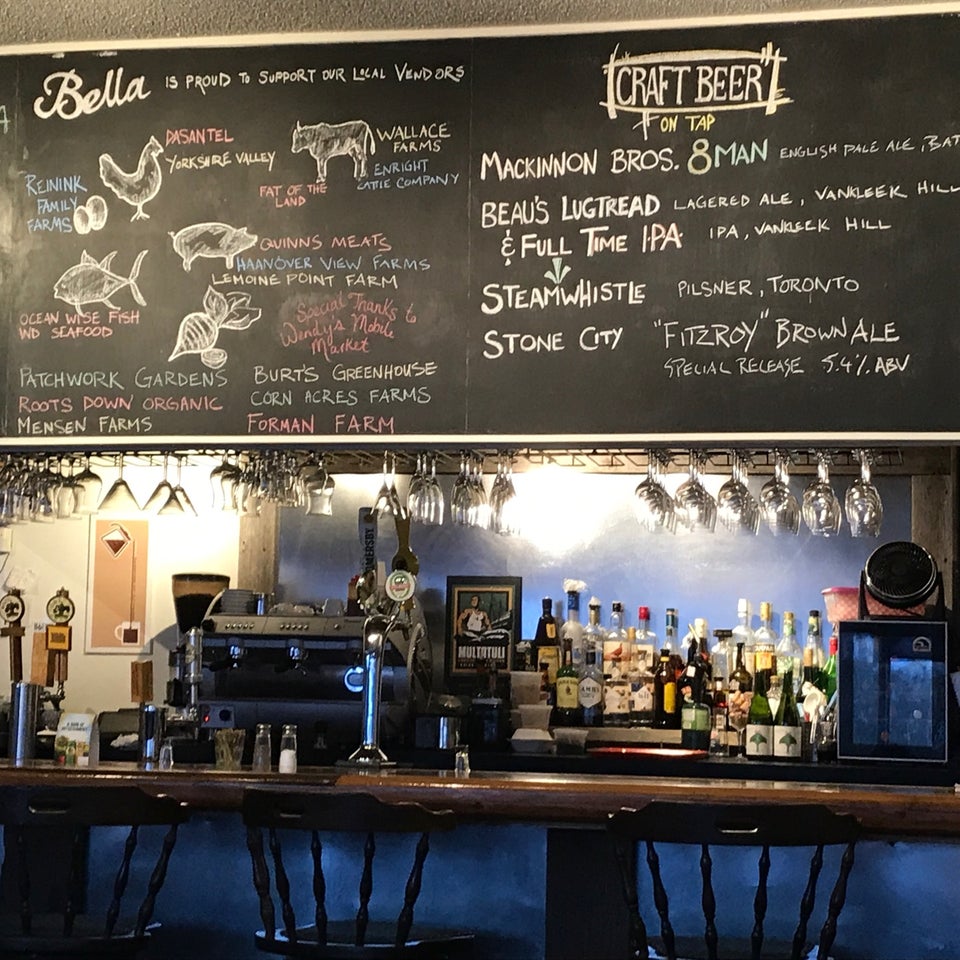 Bella IS PROUD TO SUPPORT OUR LOCAL VENDORS
DASANTEL
YORKSHIRE VALLEY
REININK
FAMILY
FARMS
WALLACE
FARMS
ENRIGHT
CATTLE COMPANY
FAT OF THE
LAND
QUINN'S MEATS
HAANOVER VIEW FARMS
LEMOINE POINT FARM
OCEAN WISE FISH
WD SEAFOOD
Special Thanks to
Wendy's Mobile
Market
PATCHWORK GARDENS
ROOTS DOWN ORGANIC
MENSEN FARMS
BURT'S GREENHOUSE
CORN ACRES FARMS
FORMAN FARM
CRAFT BEER
ON TAP
MACKINNON BROS. 8 MAN ENGLISH PALE ALE, BAT
BEAU'S LUGTREAD LAGERED ALE, VANKLEEK HILL
& FULL TIME IPA IPA, VANKLEEK HILL
STEAMWHISTLE PILSNER, TORONTO
STONE CITY "FITZROY" BROWN ALE
SPECIAL RELEASE 5.4% ABV
MULTATULI